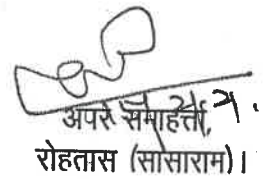 अपर समाहर्त्ता,
रोहतास (सासाराम)।